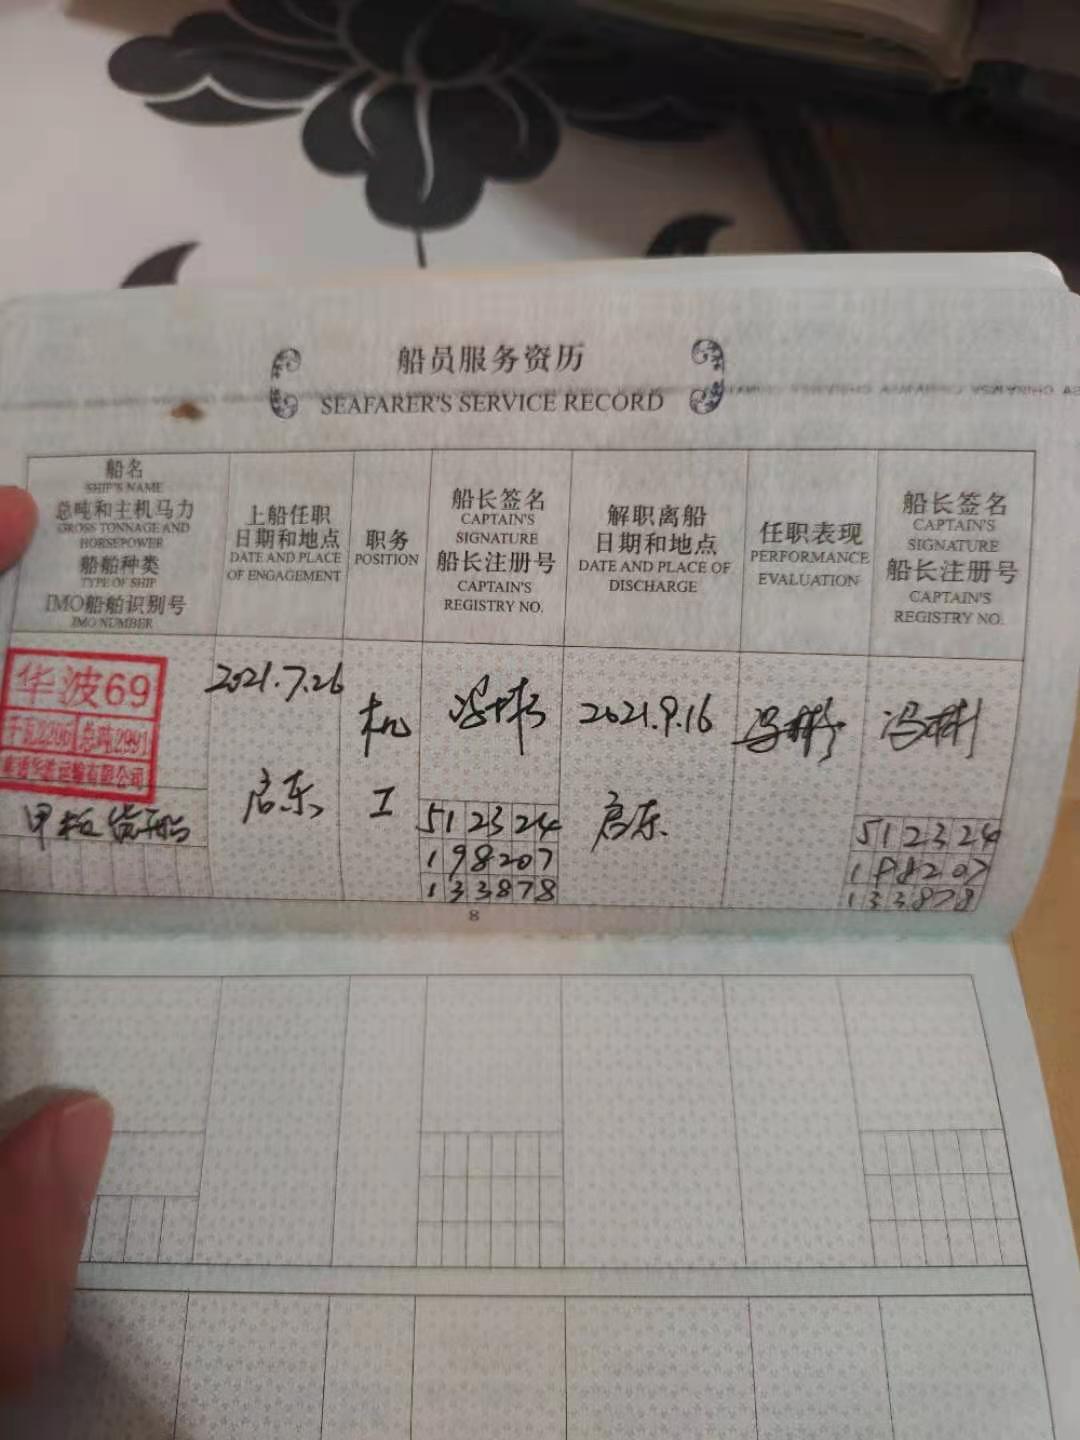 船员服务资历
SEAFARER'S SERVICE RECORD
船名
SHIP'S NAME
总吨和主机马力
GROSS TONNAGE AND
HORSEPOWER
船舶种类
TYPE OF SHIP
IMO船舶识别号
IMO NUMBER
上船任职
日期和地点
DATE AND PLACE
OF ENGAGEMENT
职务
POSITION
船长签名
CAPTAIN'S
SIGNATURE
船长注册号
CAPTAIN'S
REGISTRY NO.
解职离船
日期和地点
DATE AND PLACE OF
DISCHARGE
任职表现
PERFORMANCE
EVALUATION
船长签名
CAPTAIN'S
SIGNATURE
船长注册号
CAPTAIN'S
REGISTRY NO.
华波69
千瓦2206 总吨2991
运输有限公司
甲板货船
2021.7.26
启东
机
工
冯彬
512324
198207
133878
2021.9.16
启东
冯彬
冯彬
512324
198207
133878
8